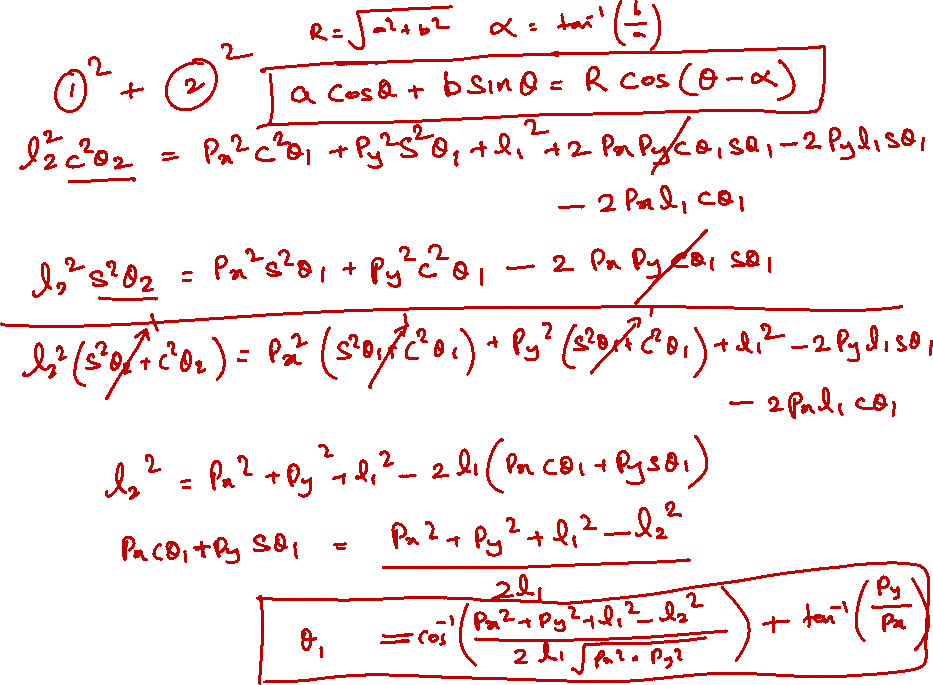 R = √a²+b² α = tan⁻¹(b/a)
①² + ②² a cosθ + b sinθ = R cos(θ-α)
l₂²c²θ₂ = Px²c²θ₁ + Py²s²θ₁ + l₁² + 2PxPycθ₁sθ₁ - 2Pyl₁sθ₁
- 2Pxl₁cθ₁
l₂²s²θ₂ = Px²s²θ₁ + Py²c²θ₁ - 2PxPycθ₁sθ₁
l₂²(s²θ₂+c²θ₂) = Px²(s²θ₁+c²θ₁) + Py²(s²θ₁+c²θ₁) + l₁² - 2Pyl₁sθ₁
- 2Pxl₁cθ₁
l₂² = Px² + Py² + l₁² - 2l₁(Pxcθ₁ + Pysθ₁)
Pxcθ₁ + Pysθ₁ = (Px² + Py² + l₁² - l₂²) / 2l₁
θ₁ = cos⁻¹((Px² + Py² + l₁² - l₂²) / (2l₁√Px²+Py²)) + tan⁻¹(Py/Px)